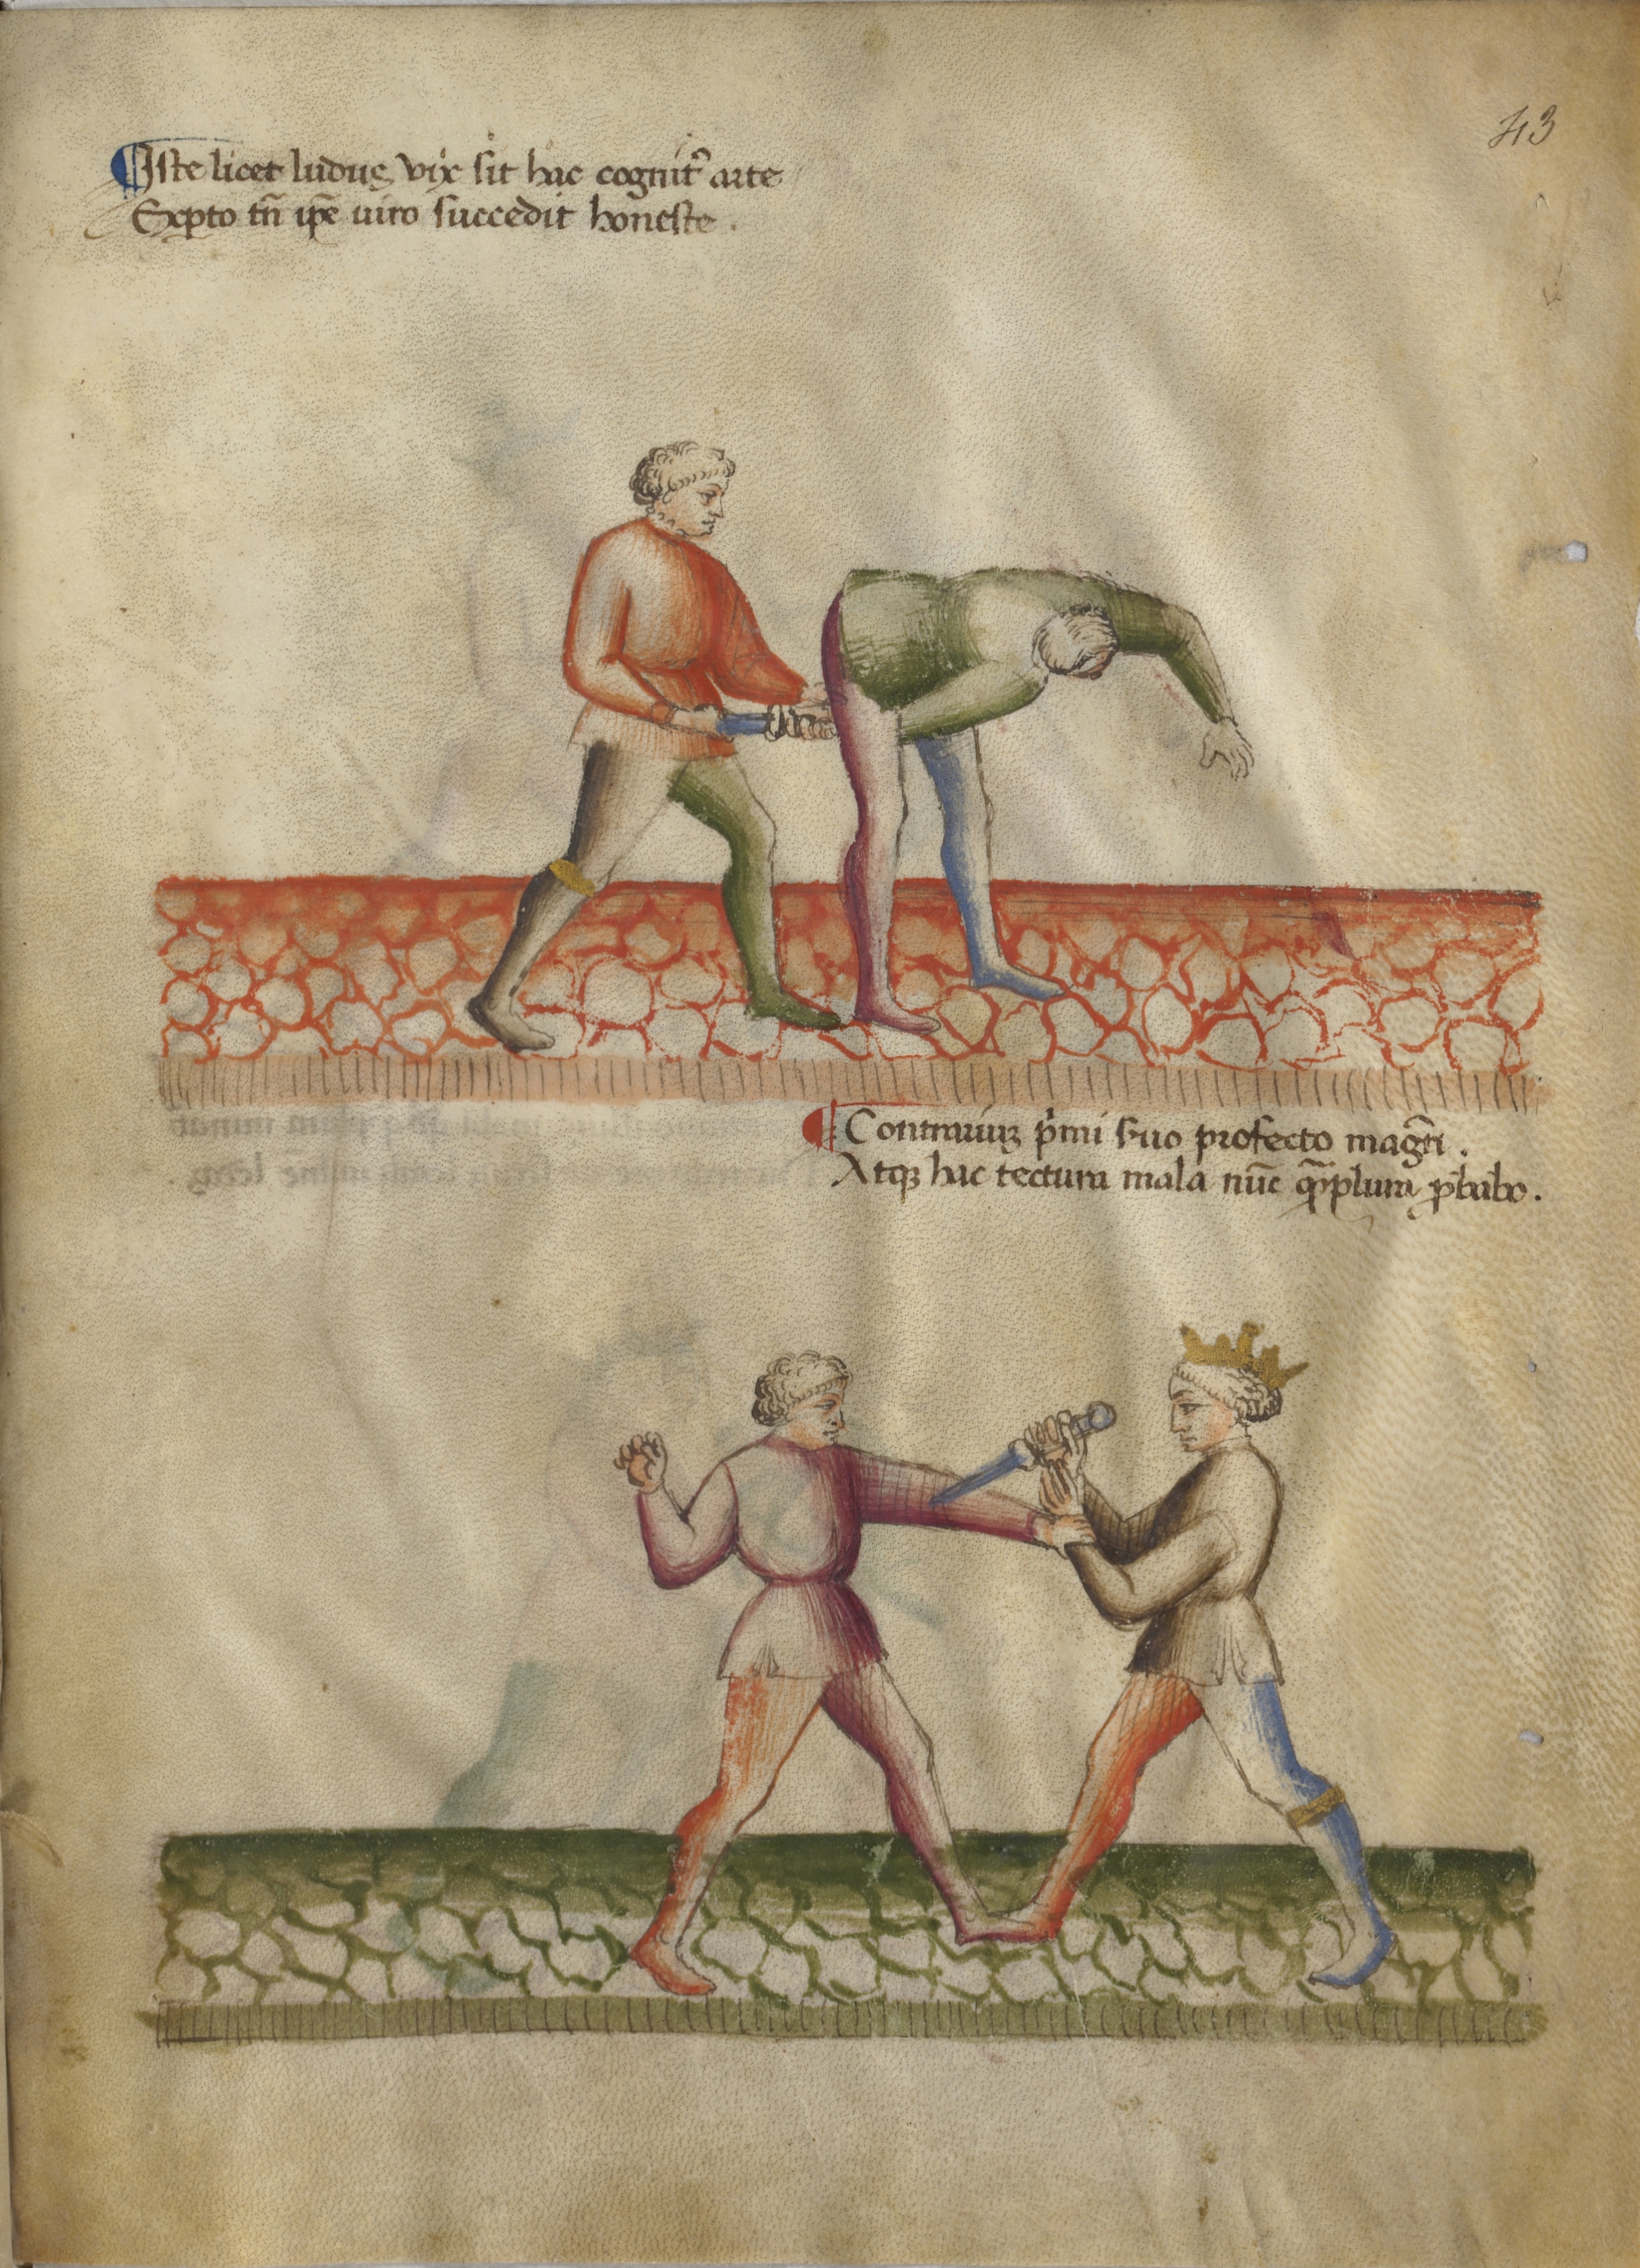 43
Iste licet ludus vix sit hac cognit᷑ arte
Exꝑto tn̄ ip̄e uiro succedit honeste .
Contrariuꝫ p̓mi suo profecto magr̄i .
Atqꝫ hac tectura mala nūc